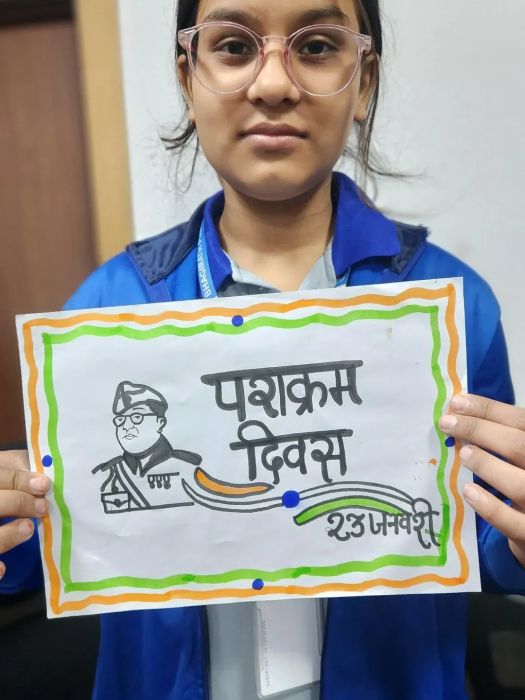 BHAGIRATH
पराक्रम
दिवस
२३ जनवरी